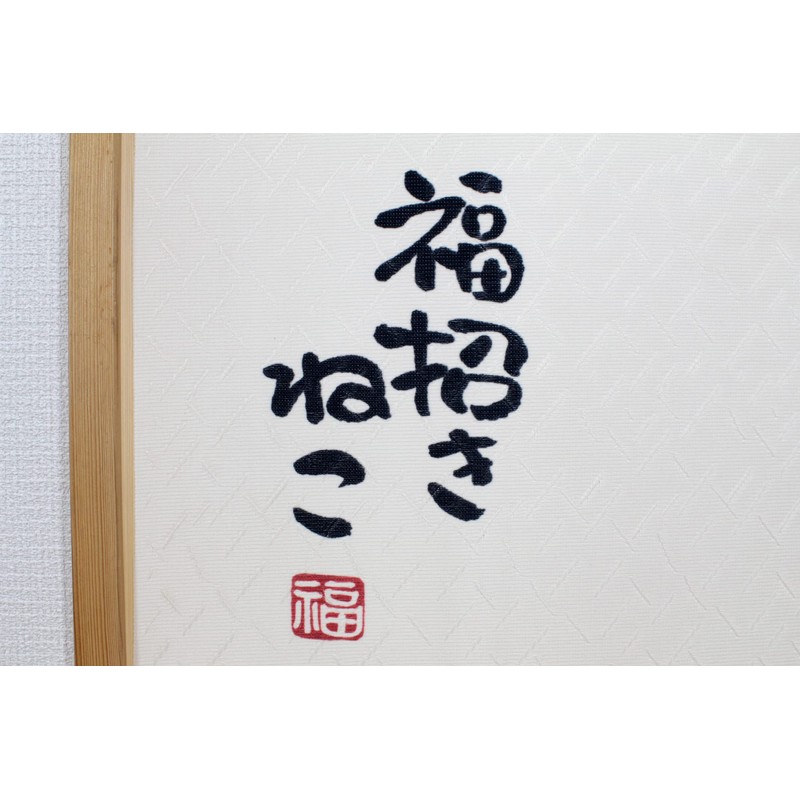 福招き
ねこ
福